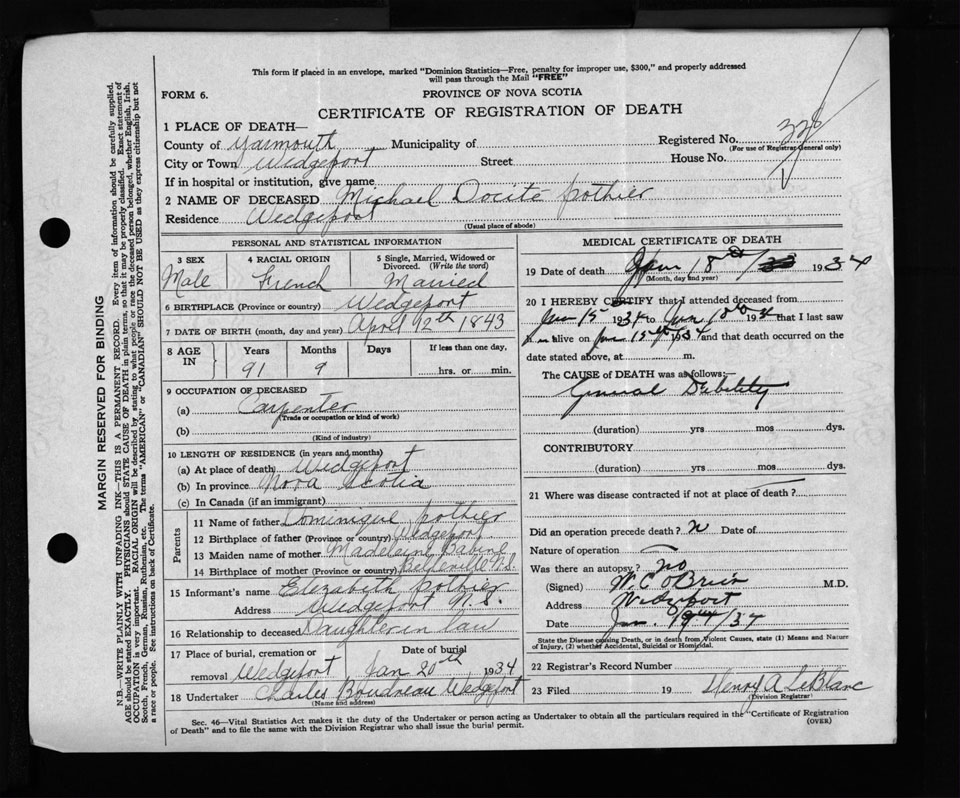 This form if placed in an envelope, marked "Dominion Statistics—Free, penalty for improper use, $300," and properly addressed
will pass through the Mail "FREE"
FORM 6.
PROVINCE OF NOVA SCOTIA
CERTIFICATE OF REGISTRATION OF DEATH
1 PLACE OF DEATH—
Registered No. 328
County of Yarmouth Municipality of
(For use of Registrar General only)
City or Town Wedgeport Street House No.
If in hospital or institution, give name
2 NAME OF DECEASED Michael Docité Pothier
Residence Wedgeport
(Usual place of abode)
PERSONAL AND STATISTICAL INFORMATION
3 SEX 4 RACIAL ORIGIN 5 Single, Married, Widowed or
Divorced. (Write the word)
Male French Married
6 BIRTHPLACE (Province or country) Wedgeport
7 DATE OF BIRTH (month, day and year) April 12th 1843
8 AGE IN Years Months Days If less than one day,
91 9 hrs. or min.
9 OCCUPATION OF DECEASED
(a) Carpenter
(Trade or occupation or kind of work)
(b)
(Kind of industry)
10 LENGTH OF RESIDENCE (in years and months)
(a) At place of death Wedgeport
(b) In province Nova Scotia
(c) In Canada (if an immigrant)
Parents
11 Name of father Dominique Pothier
12 Birthplace of father (Province or country) Wedgeport
13 Maiden name of mother Madeleine Babine
14 Birthplace of mother (Province or country) Belleville N.S.
15 Informant's name Elizabeth Pothier
Address Wedgeport N.S.
16 Relationship to deceased Daughter in law
17 Place of burial, cremation or Date of burial
removal Wedgeport Jan 20th 1934
18 Undertaker Charles Boudreau Wedgeport
(Name and address)
MEDICAL CERTIFICATE OF DEATH
19 Date of death Jan 18th 1934
(Month, day and year)
20 I HEREBY CERTIFY that I attended deceased from
Jan 15 1934 to Jan 18th 1934 that I last saw
him alive on Jan 15th 1934 and that death occurred on the
date stated above, at m.
The CAUSE of DEATH was as follows:—
General Debility
(duration) yrs mos dys.
CONTRIBUTORY
(duration) yrs mos dys.
21 Where was disease contracted if not at place of death?
Did an operation precede death? N Date of
Nature of operation
Was there an autopsy? no
(Signed) W.C O'Brien M.D.
Address Wedgeport
Date Jan. 19th/34
State the Disease causing Death, or in death from Violent Causes, state (1) Means and Nature
of Injury, (2) whether Accidental, Suicidal or Homicidal.
22 Registrar's Record Number
23 Filed 19 Henry A LeBlanc
(Division Registrar)
Sec. 46—Vital Statistics Act makes it the duty of the Undertaker or person acting as Undertaker to obtain all the particulars required in the "Certificate of Registration
of Death" and to file the same with the Division Registrar who shall issue the burial permit.
(OVER)
MARGIN RESERVED FOR BINDING
N.B.—WRITE PLAINLY WITH UNFADING INK—THIS IS A PERMANENT RECORD. Every item of information should be carefully supplied.
AGE should be stated EXACTLY. PHYSICIANS should STATE CAUSE OF DEATH in plain terms, so that it may be properly classified. Exact statement of
OCCUPATION is very important. RACIAL ORIGIN will be described by stating to what people or race the deceased person belonged, whether English, Irish,
Scotch, French, German, Russian, Ruthenian, etc. The terms "AMERICAN" or "CANADIAN" SHOULD NOT BE USED as they express citizenship but not
a race or people. See instructions on back of Certificate.